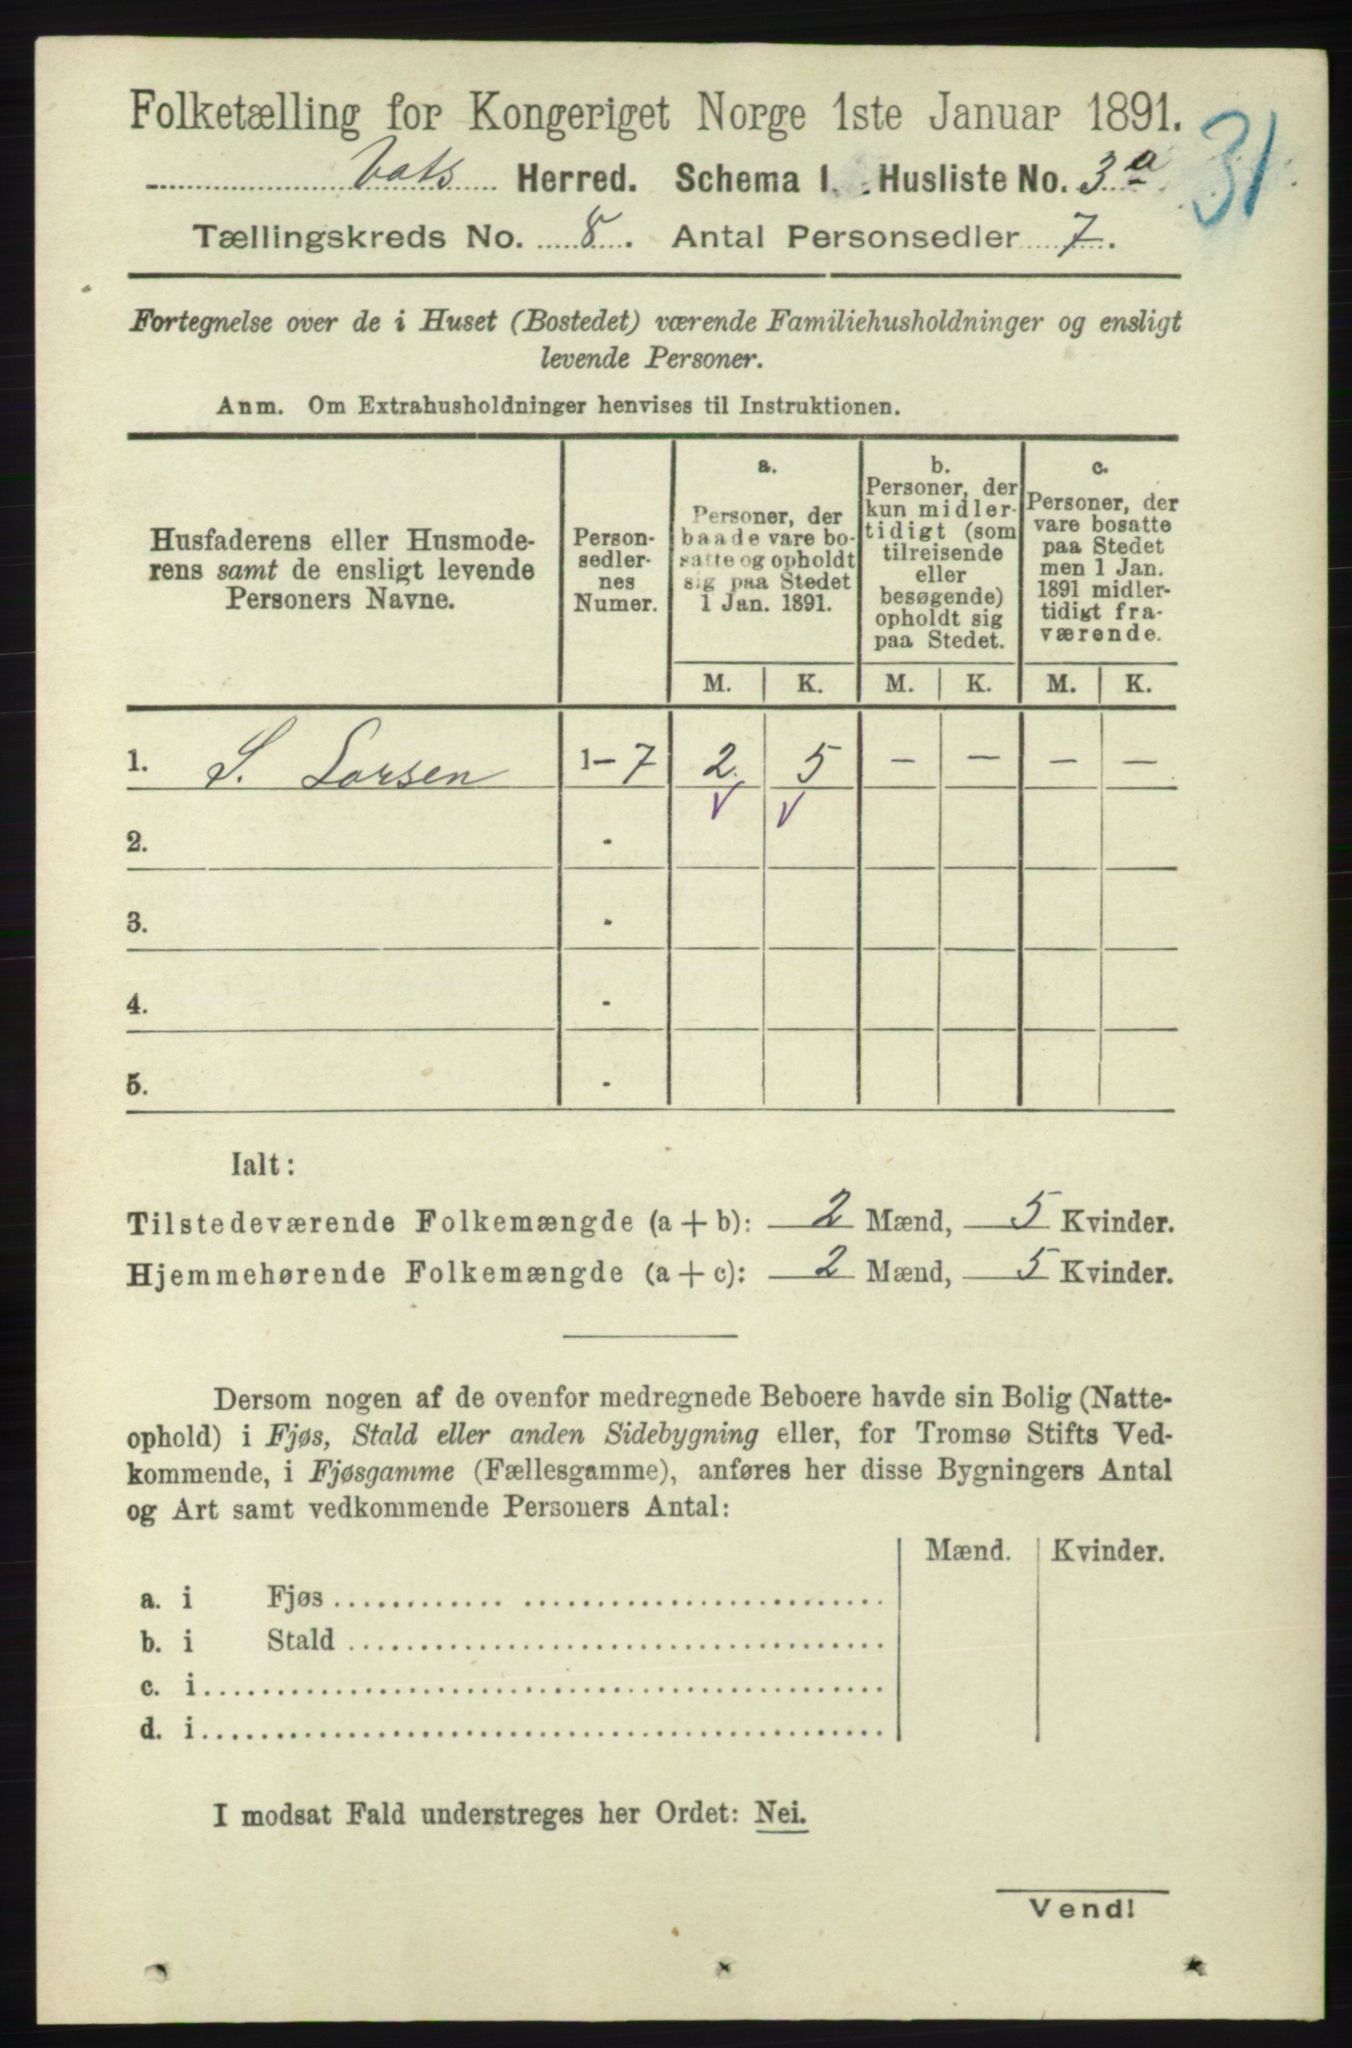 Folketælling for Kongeriget Norge 1ste Januar 1891.
31
Vats Herred. Schema I. Husliste No. 3a
Tællingskreds No. 8. Antal Personsedler 7.
Fortegnelse over de i Huset (Bostedet) værende Familiehusholdninger og ensligt
levende Personer.
Anm. Om Extrahusholdninger henvises til Instruktionen.
Husfaderens eller Husmode-
rens samt de ensligt levende
Personers Navne.
Person-
sedler-
nes
Numer.
a.
Personer, der
baade vare bo-
satte og opholdt
sig paa Stedet
1 Jan. 1891.
b.
Personer, der
kun midler-
tidigt (som
tilreisende
eller
besøgende)
opholdt sig
paa Stedet.
c.
Personer, der
vare bosatte
paa Stedet
men 1 Jan.
1891 midler-
tidigt fra-
værende.
M. K. M. K. M. K.
1. S. Larsen 1-7 2 5 — — — —
V V
2. -
3. -
4. -
5. -
Ialt:
Tilstedeværende Folkemængde (a + b): 2 Mænd, 5 Kvinder.
Hjemmehørende Folkemængde (a + c): 2 Mænd, 5 Kvinder.
Dersom nogen af de ovenfor medregnede Beboere havde sin Bolig (Natte-
ophold) i Fjøs, Stald eller anden Sidebygning eller, for Tromsø Stifts Ved-
kommende, i Fjøsgamme (Fællesgamme), anføres her disse Bygningers Antal
og Art samt vedkommende Personers Antal:
Mænd. Kvinder.
a. i Fjøs
b. i Stald
c. i
d. i
I modsat Fald understreges her Ordet: Nei.
Vend!